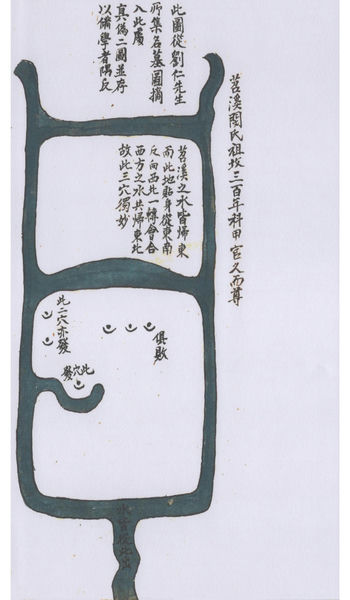 苕溪閔氏祖坟三百年科甲官久而尊
此圖從劉仁先生
所集名墓圖摘
入此處
真偽二圖並存
以備學者隅反
苕溪之水皆歸東
而此地貼身從東南
反向西北一條會合
西方之水共歸東北
故此三穴獨妙
俱敗
此二穴亦發
此穴發
水